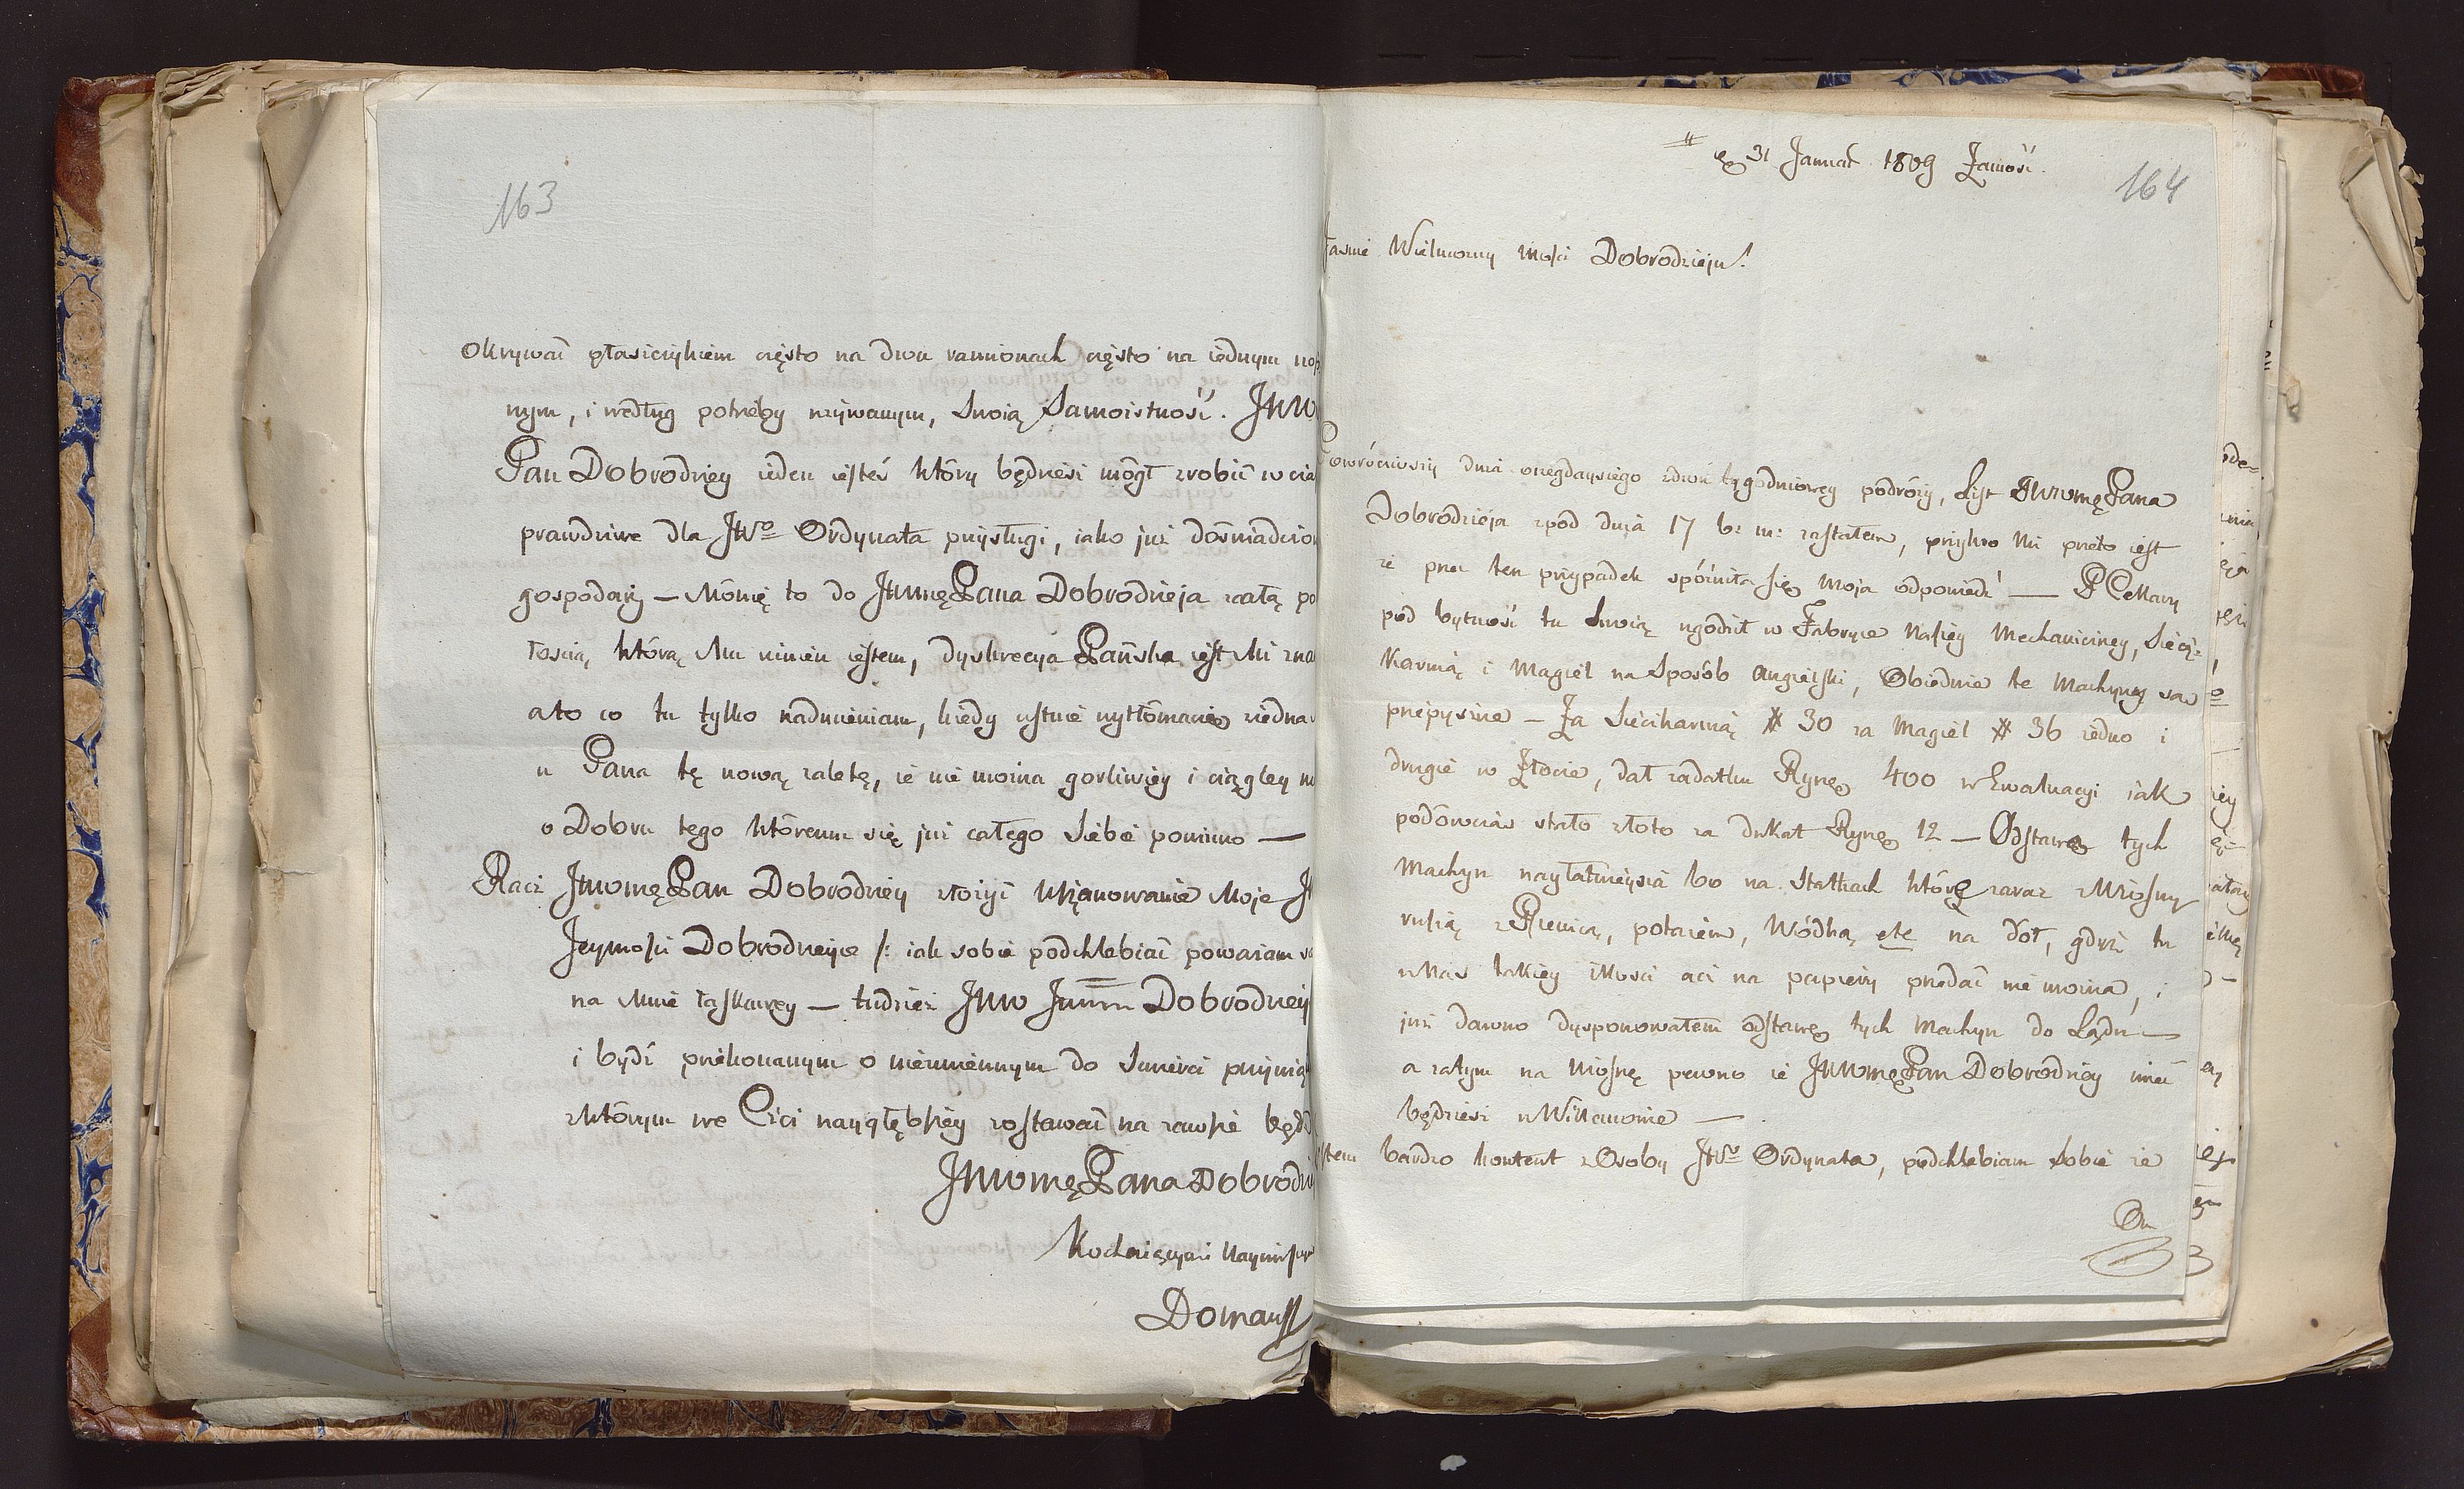 163
okrywać płasiczykiem często na dwu ramionach często na iednym
nym, i według potrzeby używanym, Swoią Samoistność. JWW
Pan Dobrodziey ieden iesteś który będziesz mógł zrobić w
prawdziwe dla JWo Ordynata przysługi, iako już doświadczo
gospodarz — Mówię to do JWWmęPana Dobrodzieja zcałą po
łością, którą Mu winien iestem, dyskrecyja Pańska iest Mi zna
ato co tu tylko nadmieniam, kiedy ustnie wytłómaczę ziedna
u Pana tę nową zaletę, że nie można gorliwiey i ciągley
o Dobru tego któremu się już całego Siebie powinno —
Racz JWWmęPan Dobrodziey złożyć Uszanowanie Moje
Jeymości Dobrodzieyce /: iak sobie podchlebiać poważam
na Mnie łaskawey — tudzież JWW Dobrodziey
i bydź przekonanym o niezmiennym do Śmierci
zktórym we Czci naygłębszey zostawać na zawsze będ
JWWmęPana Dobrodzi
Kochaiącym
Domau
31 Januar 1809 Zamość.
164
Jaśnie Wielmożny Mości Dobrodzieju!
Powróciwszy dnia onegdayszego zdwu tygodniowey podróży, List JWWmęPana
Dobrodzieja zpod dnia 17 b: m: zastałem, przykro Mi przeto iest
że przez ten przypadek spóźniła się Moja odpowiedź — P Cellary
pod bytność tu Swoią ugodził w Fabryce Naszey Mechaniczney, Siecz-
karnią i Magiel na Sposób Angielski, Obiedwie te Machyny są
przepyszne — Za Sieczkarnią # 30 za Magiel # 36 iedno i
drugie w Złocie, dał zadatku Rynę 400 w Ewaluacyi iak
podówczas stało złoto za dukat Rynę 12 — Odstawa tych
Machyn nayłatwieysza bo na Statkach które zaraz zWiosny
ruszą zPszenicą, potażem, Wódką etc na dół, gdyż tu
uNas takiey ilkości aż na papiery przedać nie można, i
już dawno dysponowałem odstawę tych Machyn do Lądu —
a zatym na wiosnę pewno ie JWWmęPan Dobrodziey mieć
będziesz uWillanowie —
stem bardzo kontent z Osoby JWo Ordynata, podchlebiam Sobie że